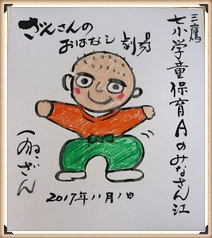 三鷹
七小学童保育Aのみなさん江
ざんさんの
おはなし劇場
ざん
2017年11月1日